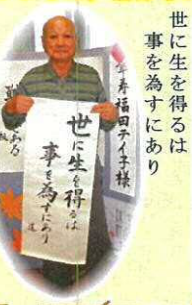 世に生を得るは
事を為すにあり
年寿福田テイ子様
世に生を得るは
事を為すにあり